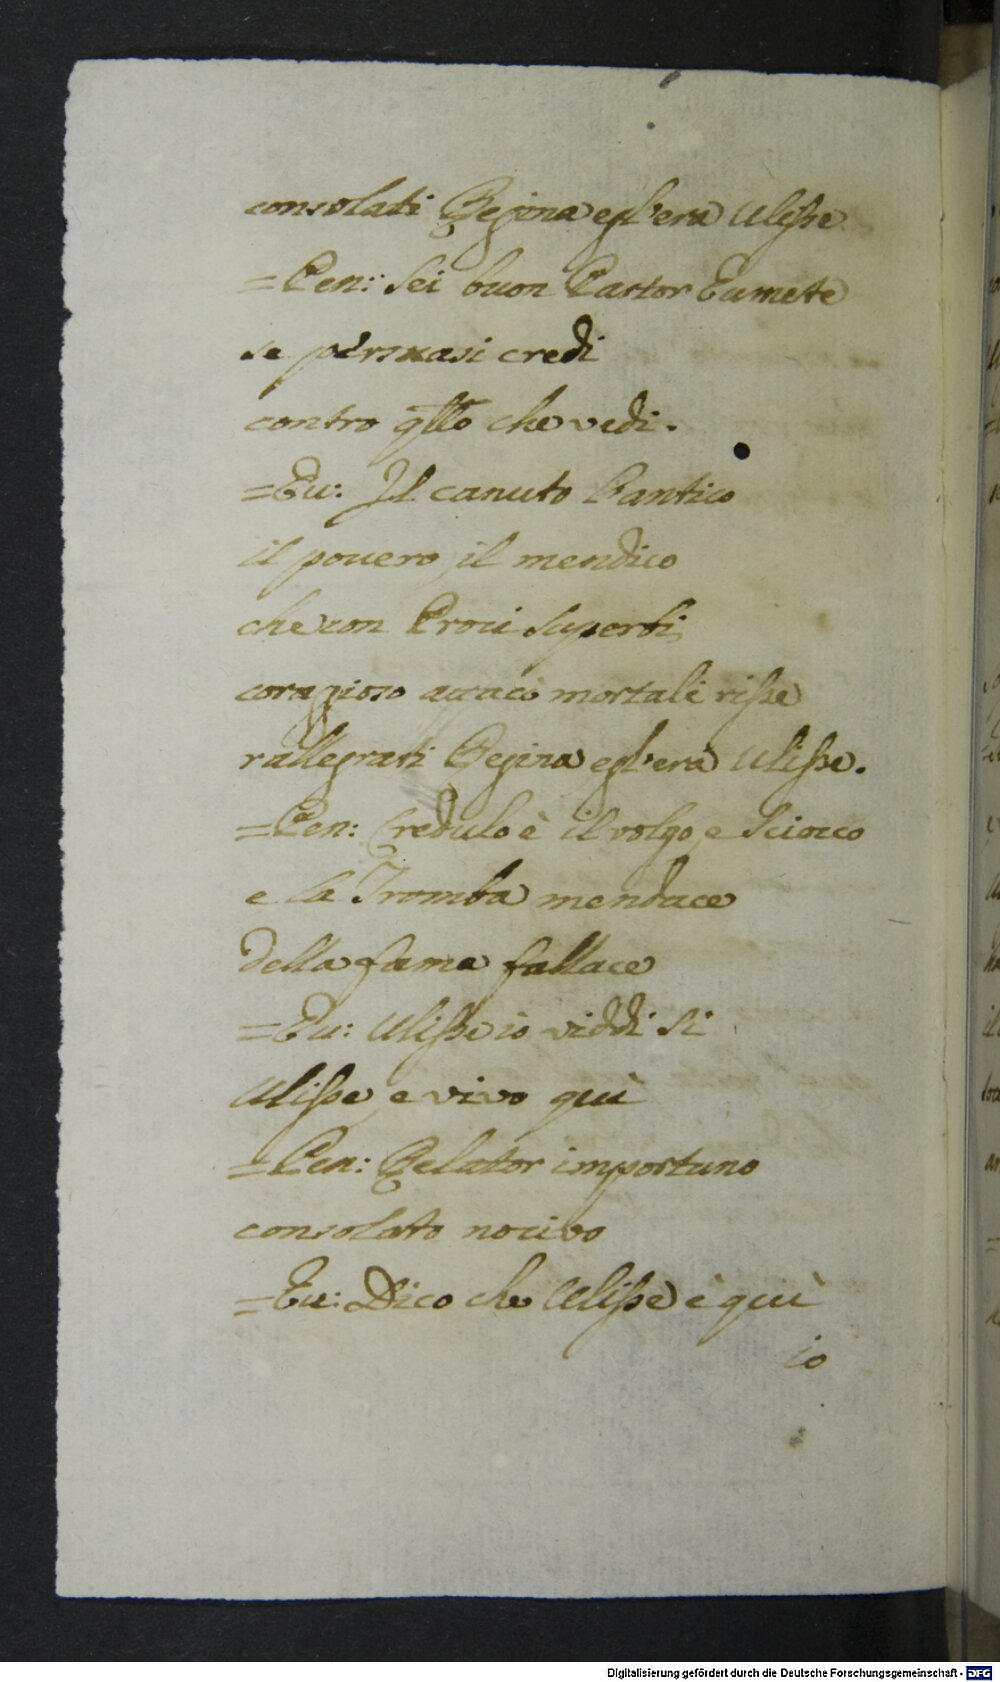 consolati Regina egl'era Ulisse
=Pen: Sei buon Pastor Eumete
se persuasi credi
contro qllo che vedi.
=Eu: Il canuto l'antico
il povero, il mendico
che con Proci superbi
coragioso attacò mortali risse
rallegrati Regina egl'era Ulisse.
=Pen: Credulo è il volgo, e sciocco
e la Tromba mendace
della fama fallace
=Eu: Ulisse io viddi si
Ulisse, e vivo qui
=Pen: Relator importuno
consolato nocivo
=Eu: Dico che Ulisse è qui
io
Digitalisierung gefördert durch die Deutsche Forschungsgemeinschaft - DFG